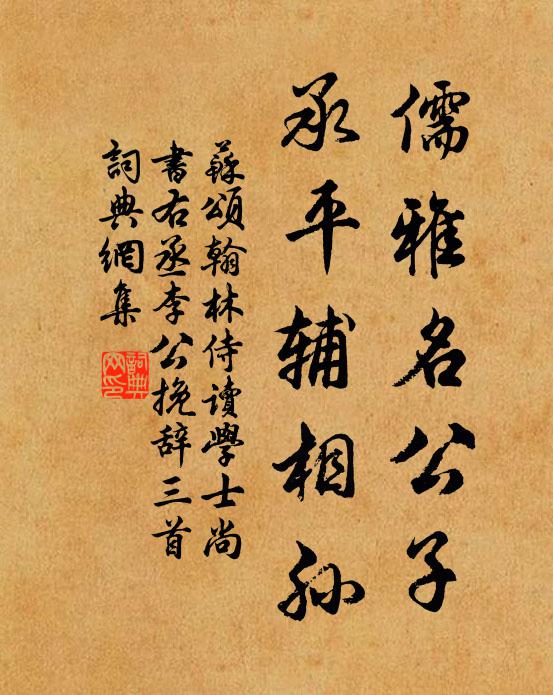 儒雅名公子
承平辅相孙
蘇頌翰林侍讀學士尚
書右丞李公挽辞三首
詞典網集
詞典
网印